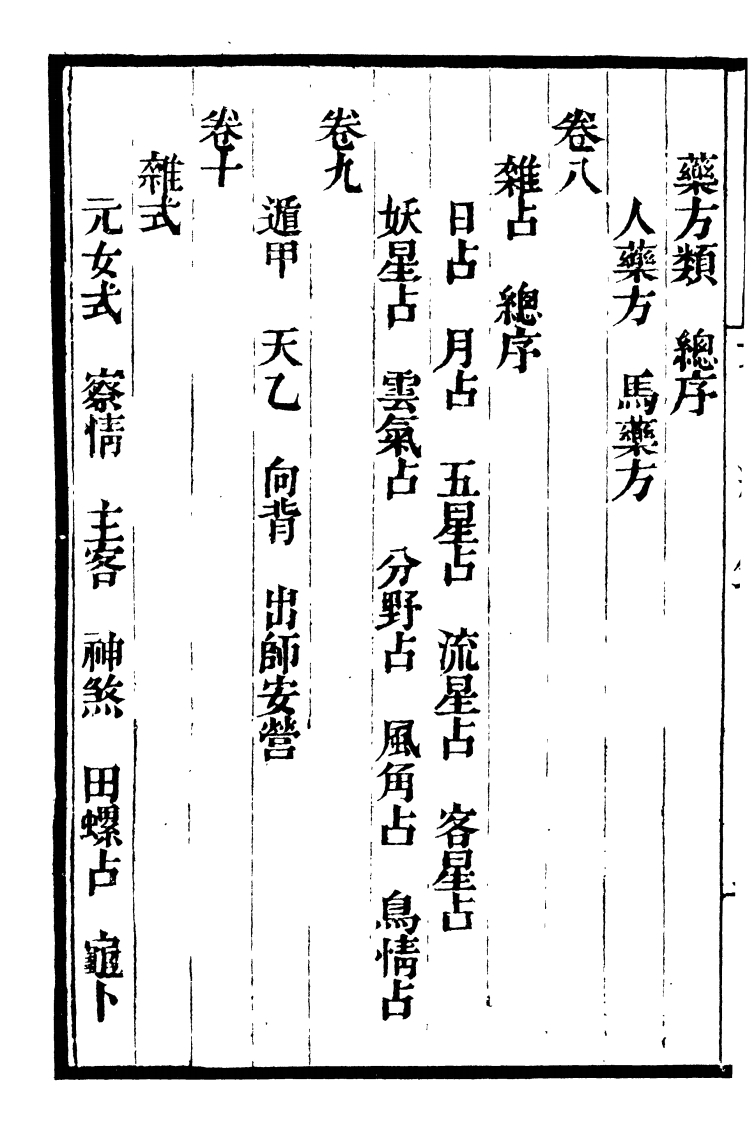 藥方類　總序
人藥方　馬藥方
卷八
雜占　總序
日占　月占　五星占　流星占　客星占
妖星占　雲氣占　分野占　風角占　鳥情占
卷九
遁甲　天乙　向背　出師安營
卷十
雜式
元女式　察情　主客　神煞　田螺占　龜卜